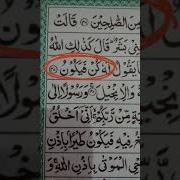 مِنَ الصّٰلِحِيْنَ قَالَتْ
بَشَرٌ قَالَ كَذٰلِكِ اللّٰهُ
يَقُوْلُ لَهٗ كُنْ فَيَكُوْنُ
وَالْاِنْجِيْلَ وَرَسُوْلًا اِلٰى
مِّنْ رَّبِّكُمْ اَنِّيْۤ اَخْلُقُ
فِيْهِ فَيَكُوْنُ طَيْرًۢا بِاِذْنِ
الْمَوْتٰى بِاِذْنِ اللّٰهِ وَ